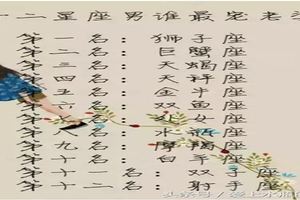 十二星座男谁最宠老
第一名：狮子座
第二名：巨蟹座
第三名：天蝎座
第四名：天秤座
第五名：金牛座
第六名：双鱼座
名：水瓶座
第九名：摩羯座
第十名：白羊座
第十一名：双子座
第十二名：射手座